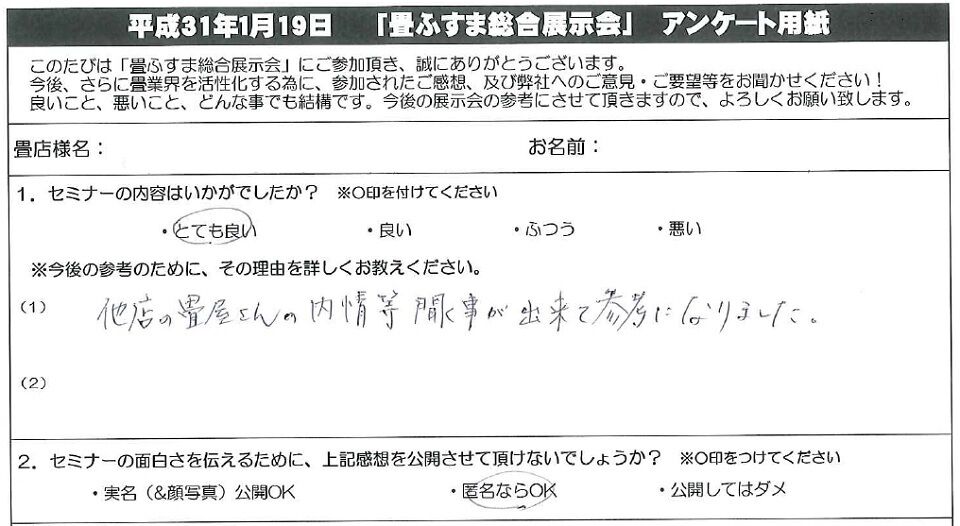 平成31年1月19日 「畳ふすま総合展示会」 アンケート用紙
このたびは「畳ふすま総合展示会」にご参加頂き、誠にありがとうございます。
今後、さらに畳業界を活性化する為に、参加されたご感想、及び弊社へのご意見・ご要望等をお聞かせください！
良いこと、悪いこと、どんな事でも結構です。今後の展示会の参考にさせて頂きますので、よろしくお願い致します。
畳店様名： お名前：
1．セミナーの内容はいかがでしたか？ ※〇印を付けてください
・とても良い ・良い ・ふつう ・悪い
※今後の参考のために、その理由を詳しくお教えください。
(1) 他店の畳屋さんの内情等聞く事が出来て参考になりました。
(2)
2．セミナーの面白さを伝えるために、上記感想を公開させて頂けないでしょうか？ ※〇印をつけてください
・実名（&顔写真）公開OK ・匿名ならOK ・公開してはダメ